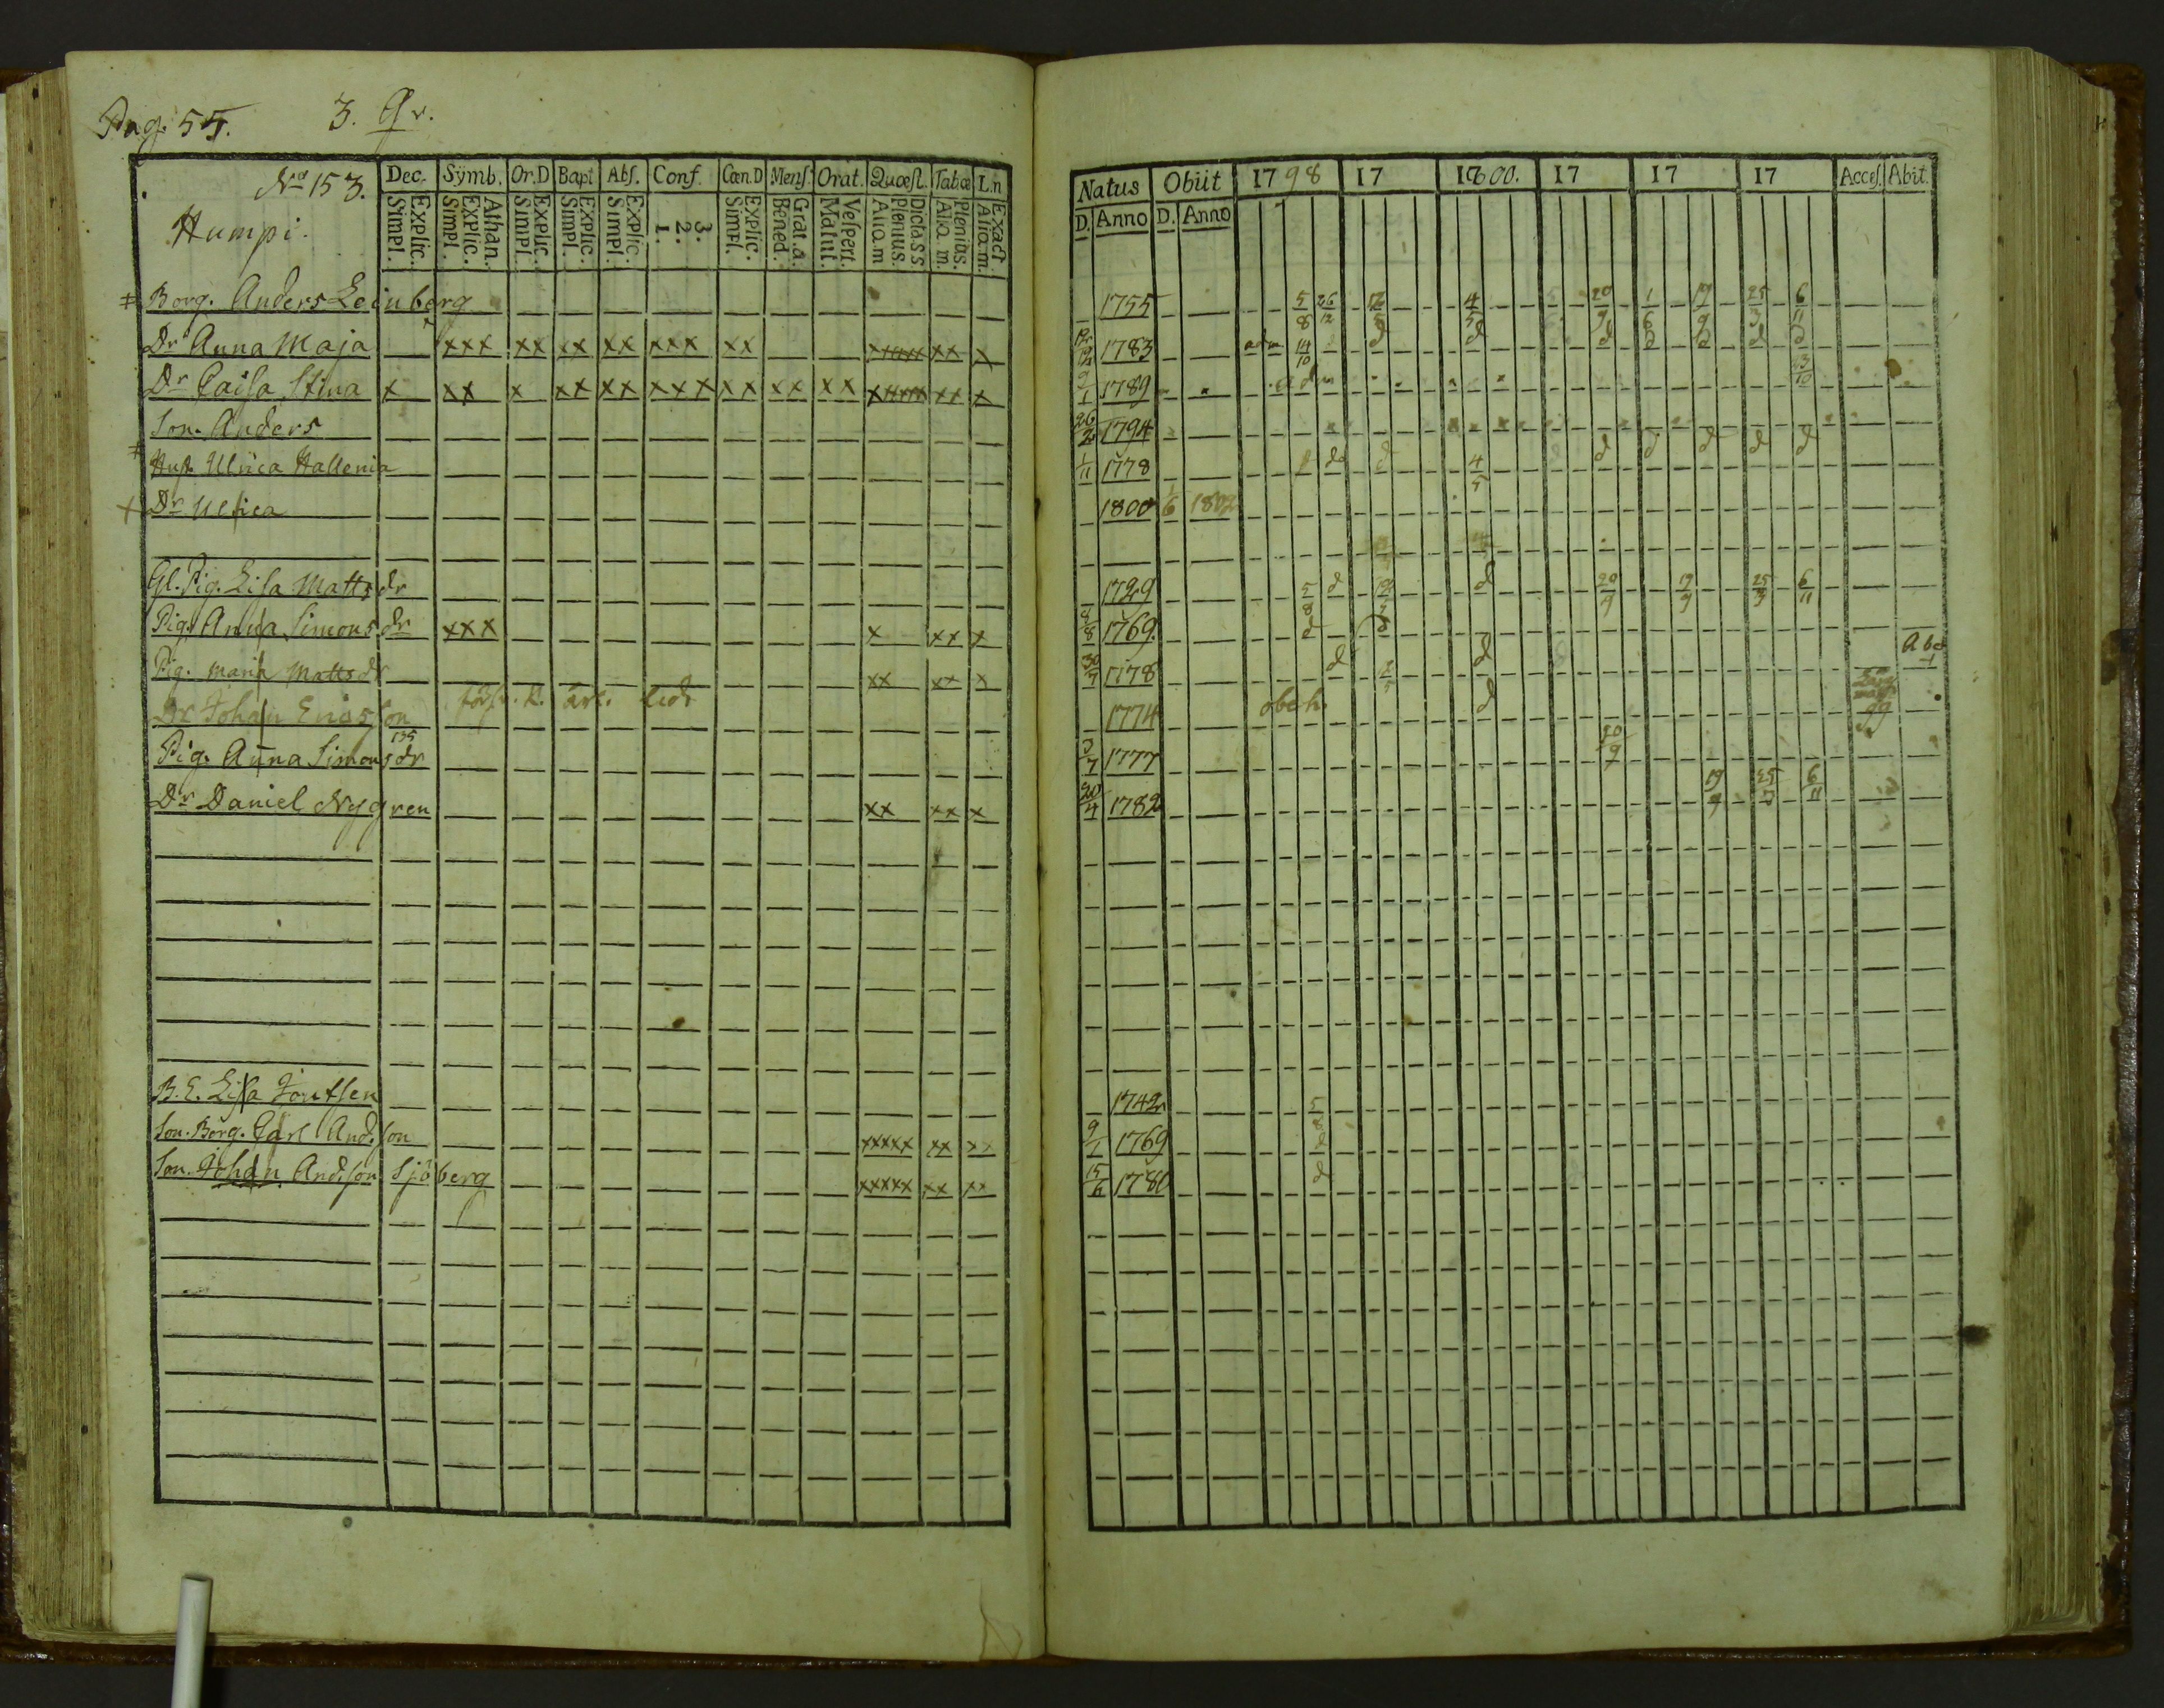 Pag. 55. 3. Qr.
No 153. Dec. Sÿmb. Or.D Bapt Abſ. Conf. Cœn.D Menſ. Orat. Quœſt. Tabœ L.n
Humpi.
Explic. Simpl. Athan. Explic. Simpl. Explic. Simpl. Explic. Simpl. Explic. Simpl. 3. 2. 1. Explic. Simpl. Grat.a. Bened. Veſpert. Matut. Dicta.S.S Plenius. Aliq.m Plenius. Aliq.m. Exact. Aliq.m.
Borg. Anders Leinberg
Dr Anna Maja xxx xx xx xx xxx xx xx x
Dr Caisa Stina x xx x xx xx xxx xx xx xx xx x
Son. Anders
Hust. Ulrica Hallenia
Dr Ulrica
Gl. Pig. Lisa Mattsdr
Pig. Anna Simonsdr xxx x xx x
Pig. Maria Mattsdr xx xx x
Dr Johan Ericsson
Pig. Anna Simonsdr
Dr Daniel Nygren xx xx x
B. E. Lisa Jontsen
Son. Borg. Carl And.son xxxxx xx xx
Son. Johan And.son Sjöberg xxxxx xx xx
Natus Obiit 1798 17 1800. 17 17 17 Acceſ. Abit.
D. Anno D. Anno
1755 5/8 26/12 4/5 20/9 1/6 19/9 25/3 6/11
1783 adm 14/10 d d d d d d d
9/1 1789 adm 13/10
26/2 1794
1/11 1778 d d 4/5 d d d d d
1800 1/6 1802
1729 5/8 d d 20/9 19/9 25/3 6/11
8/8 1769. d d
30/7 1778 d d Abo
1774 obeh. d
3/7 1777 20/9
20/4 1782 19/9 25/3 6/11
1742 5/8
9/1 1769 d
15/6 1780 d